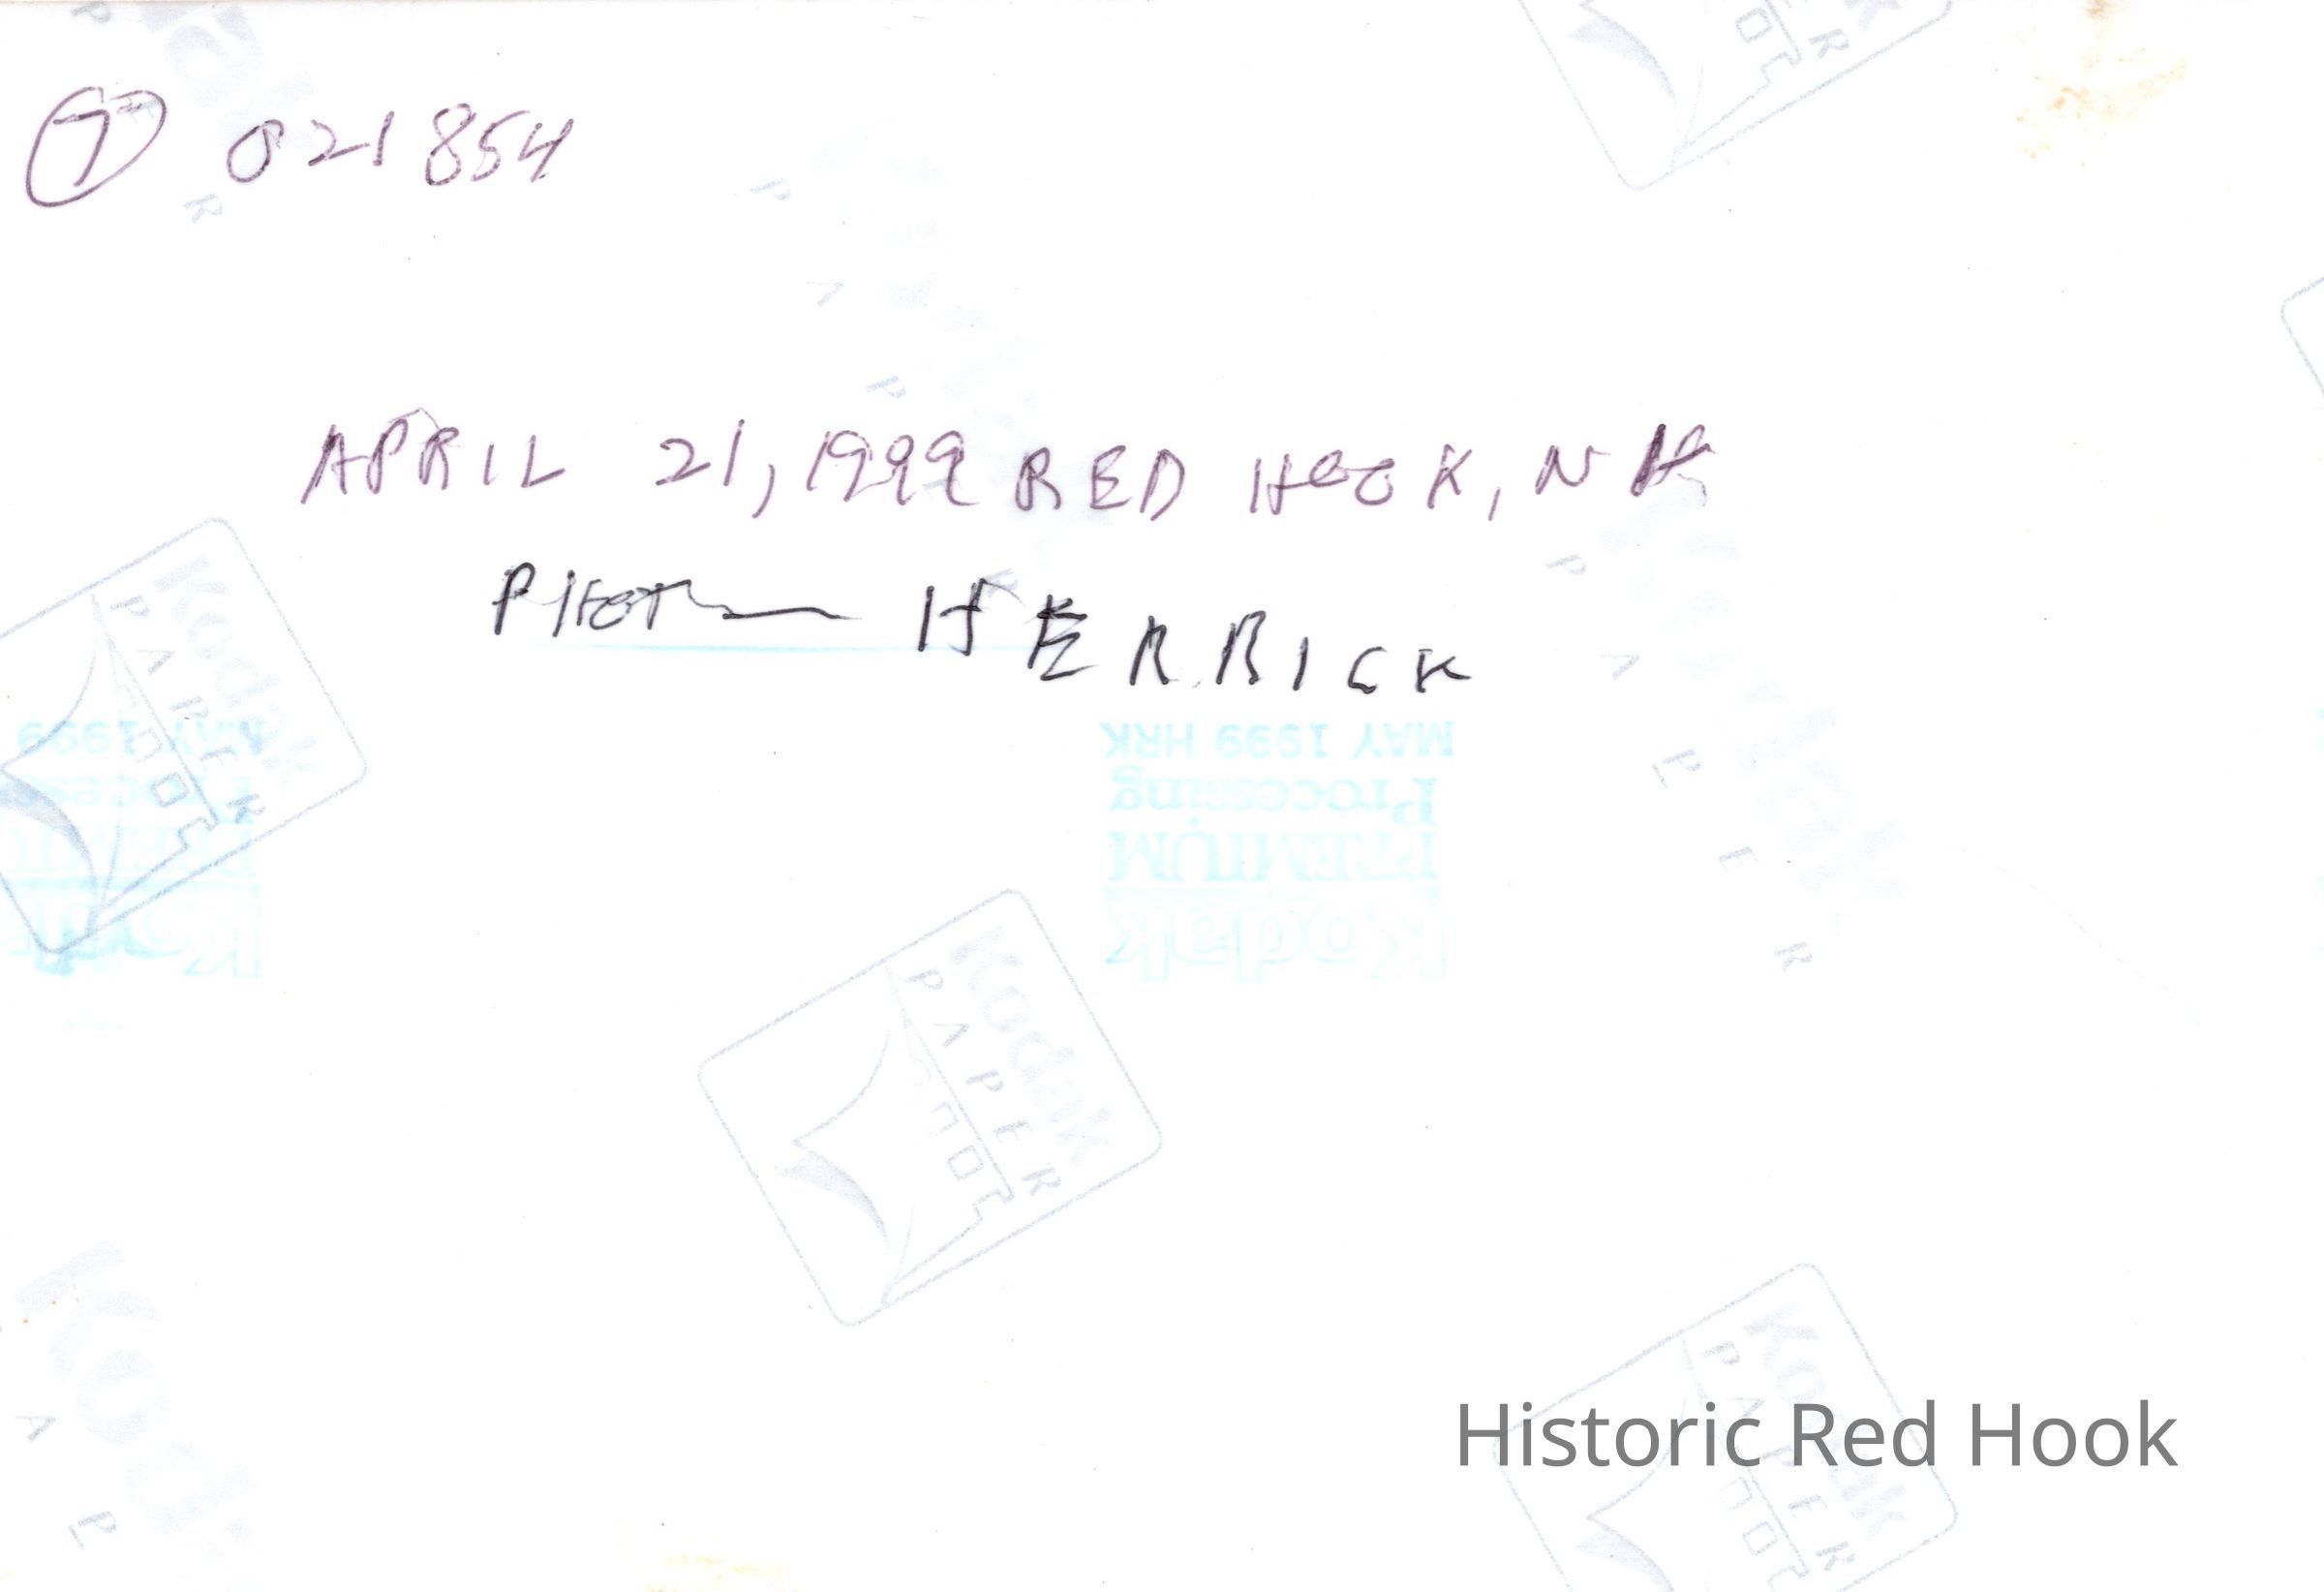 7 021854
APRIL 21, 1999 RED HOOK, N
PHOTO — HERRICK
MAY 1999 HRK
Processing
PREMIUM
Kodak
Kodak
PAPER
Kodak
PAPER
Kodak
PAPER
Historic Red Hook